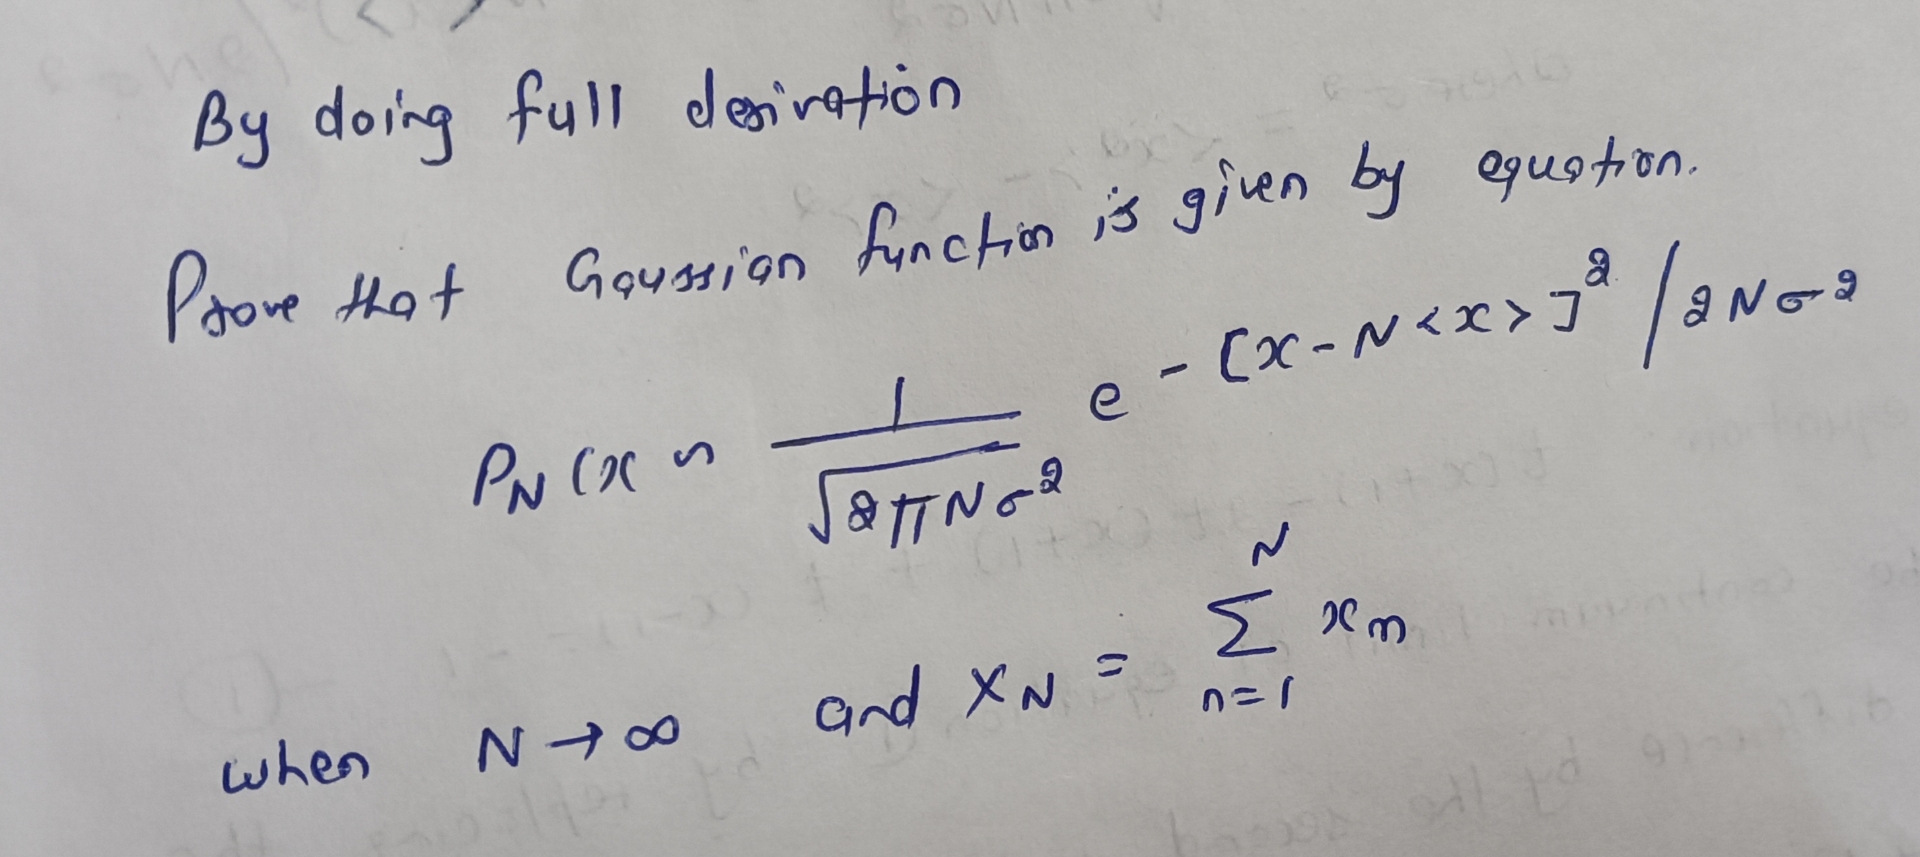 By doing full derivation
Prove that Gaussian function is given by equation.
P_N(x ~ \frac{1}{\sqrt{2πNσ^2}} e^{-[x-N<x>]^2/2Nσ^2}
when N → ∞ and X_N = \sum_{n=1}^{N} x_n